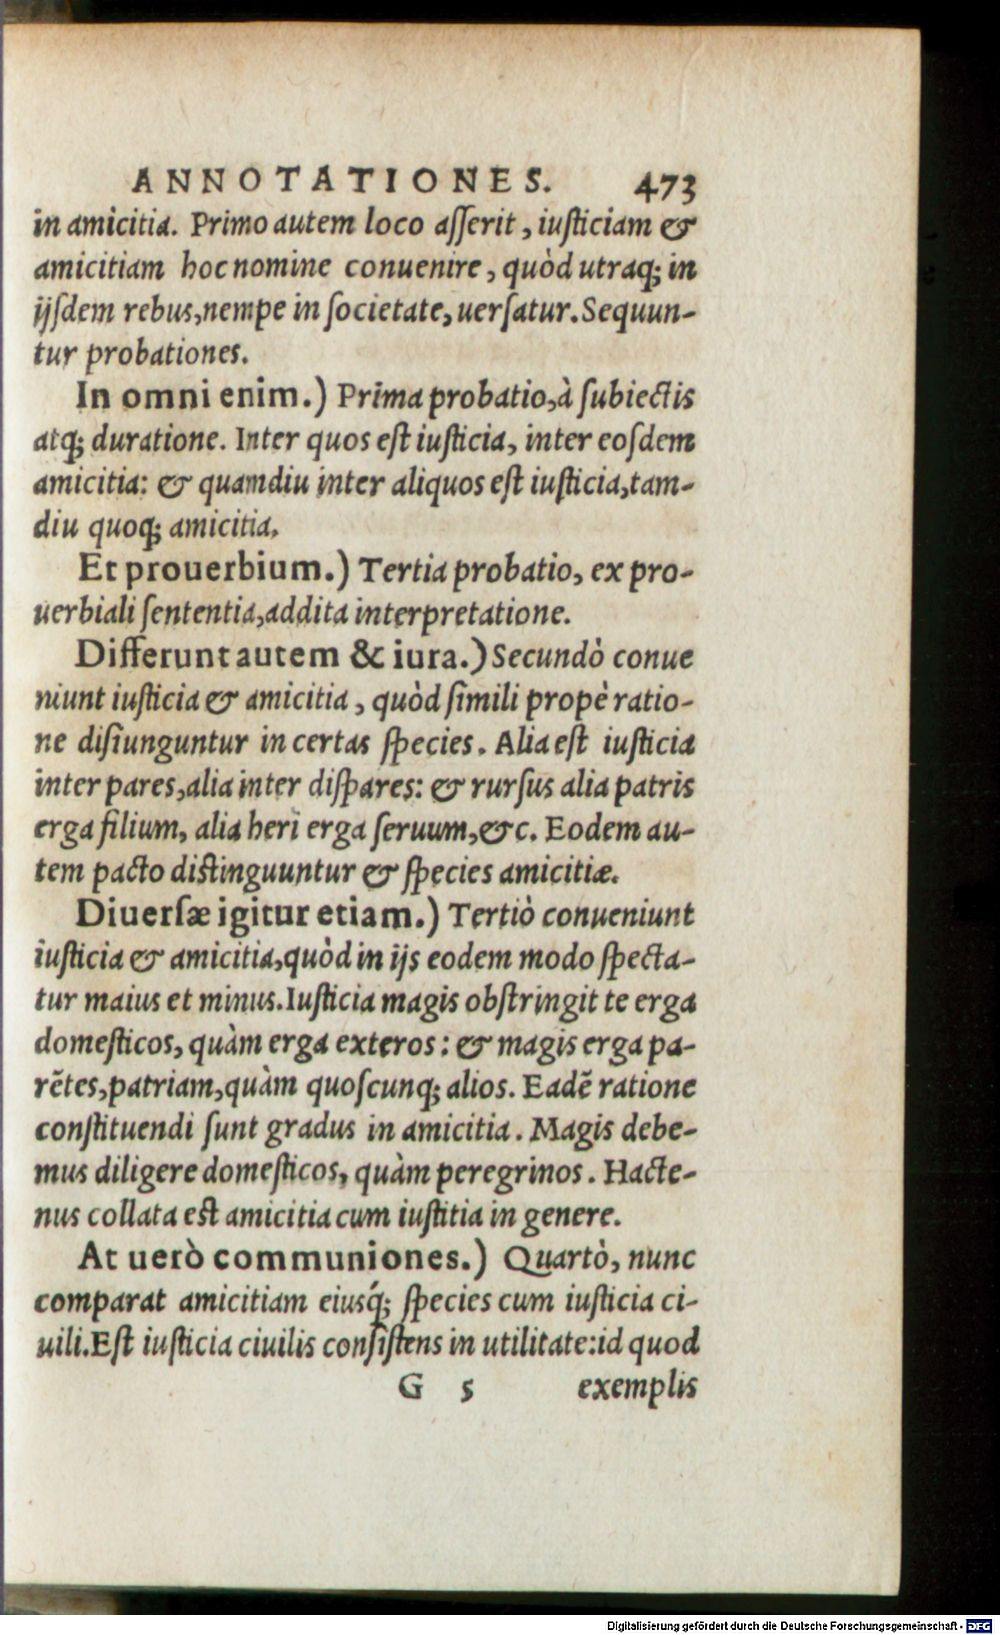 ANNOTATIONES. 473
in amicitia. Primo autem loco aſſerit, iuſticiam &
amicitiam hoc nomine conuenire, quòd utraq; in
ijſdem rebus, nempe in ſocietate, uerſatur. Sequun-
tur probationes.
In omni enim.) Prima probatio, à ſubiectis
atq; duratione. Inter quos eſt iuſticia, inter eoſdem
amicitia: & quamdiu inter aliquos eſt iuſticia, tam-
diu quoq; amicitia.
Et prouerbium.) Tertia probatio, ex pro-
uerbiali ſententia, addita interpretatione.
Differunt autem & iura.) Secundò conue
niunt iuſticia & amicitia, quòd ſimili propè ratio-
ne diſiunguntur in certas ſpecies. Alia eſt iuſticia
inter pares, alia inter diſpares: & rurſus alia patris
erga filium, alia heri erga ſeruum, &c. Eodem au-
tem pacto diſtinguuntur & ſpecies amicitiæ.
Diuerſæ igitur etiam.) Tertiò conueniunt
iuſticia & amicitia, quòd in ijs eodem modo ſpecta-
tur maius et minus. Iuſticia magis obſtringit te erga
domeſticos, quàm erga exteros: & magis erga pa-
rẽtes, patriam, quàm quoſcunq; alios. Eadẽ ratione
conſtituendi ſunt gradus in amicitia. Magis debe-
mus diligere domeſticos, quàm peregrinos. Hacte-
nus collata eſt amicitia cum iuſtitia in genere.
At uerò communiones.) Quartò, nunc
comparat amicitiam eiusq́; ſpecies cum iuſticia ci-
uili. Eſt iuſticia ciuilis conſiſtens in utilitate: id quod
G 5 exemplis
Digitalisierung gefördert durch die Deutsche Forschungsgemeinschaft - DFG